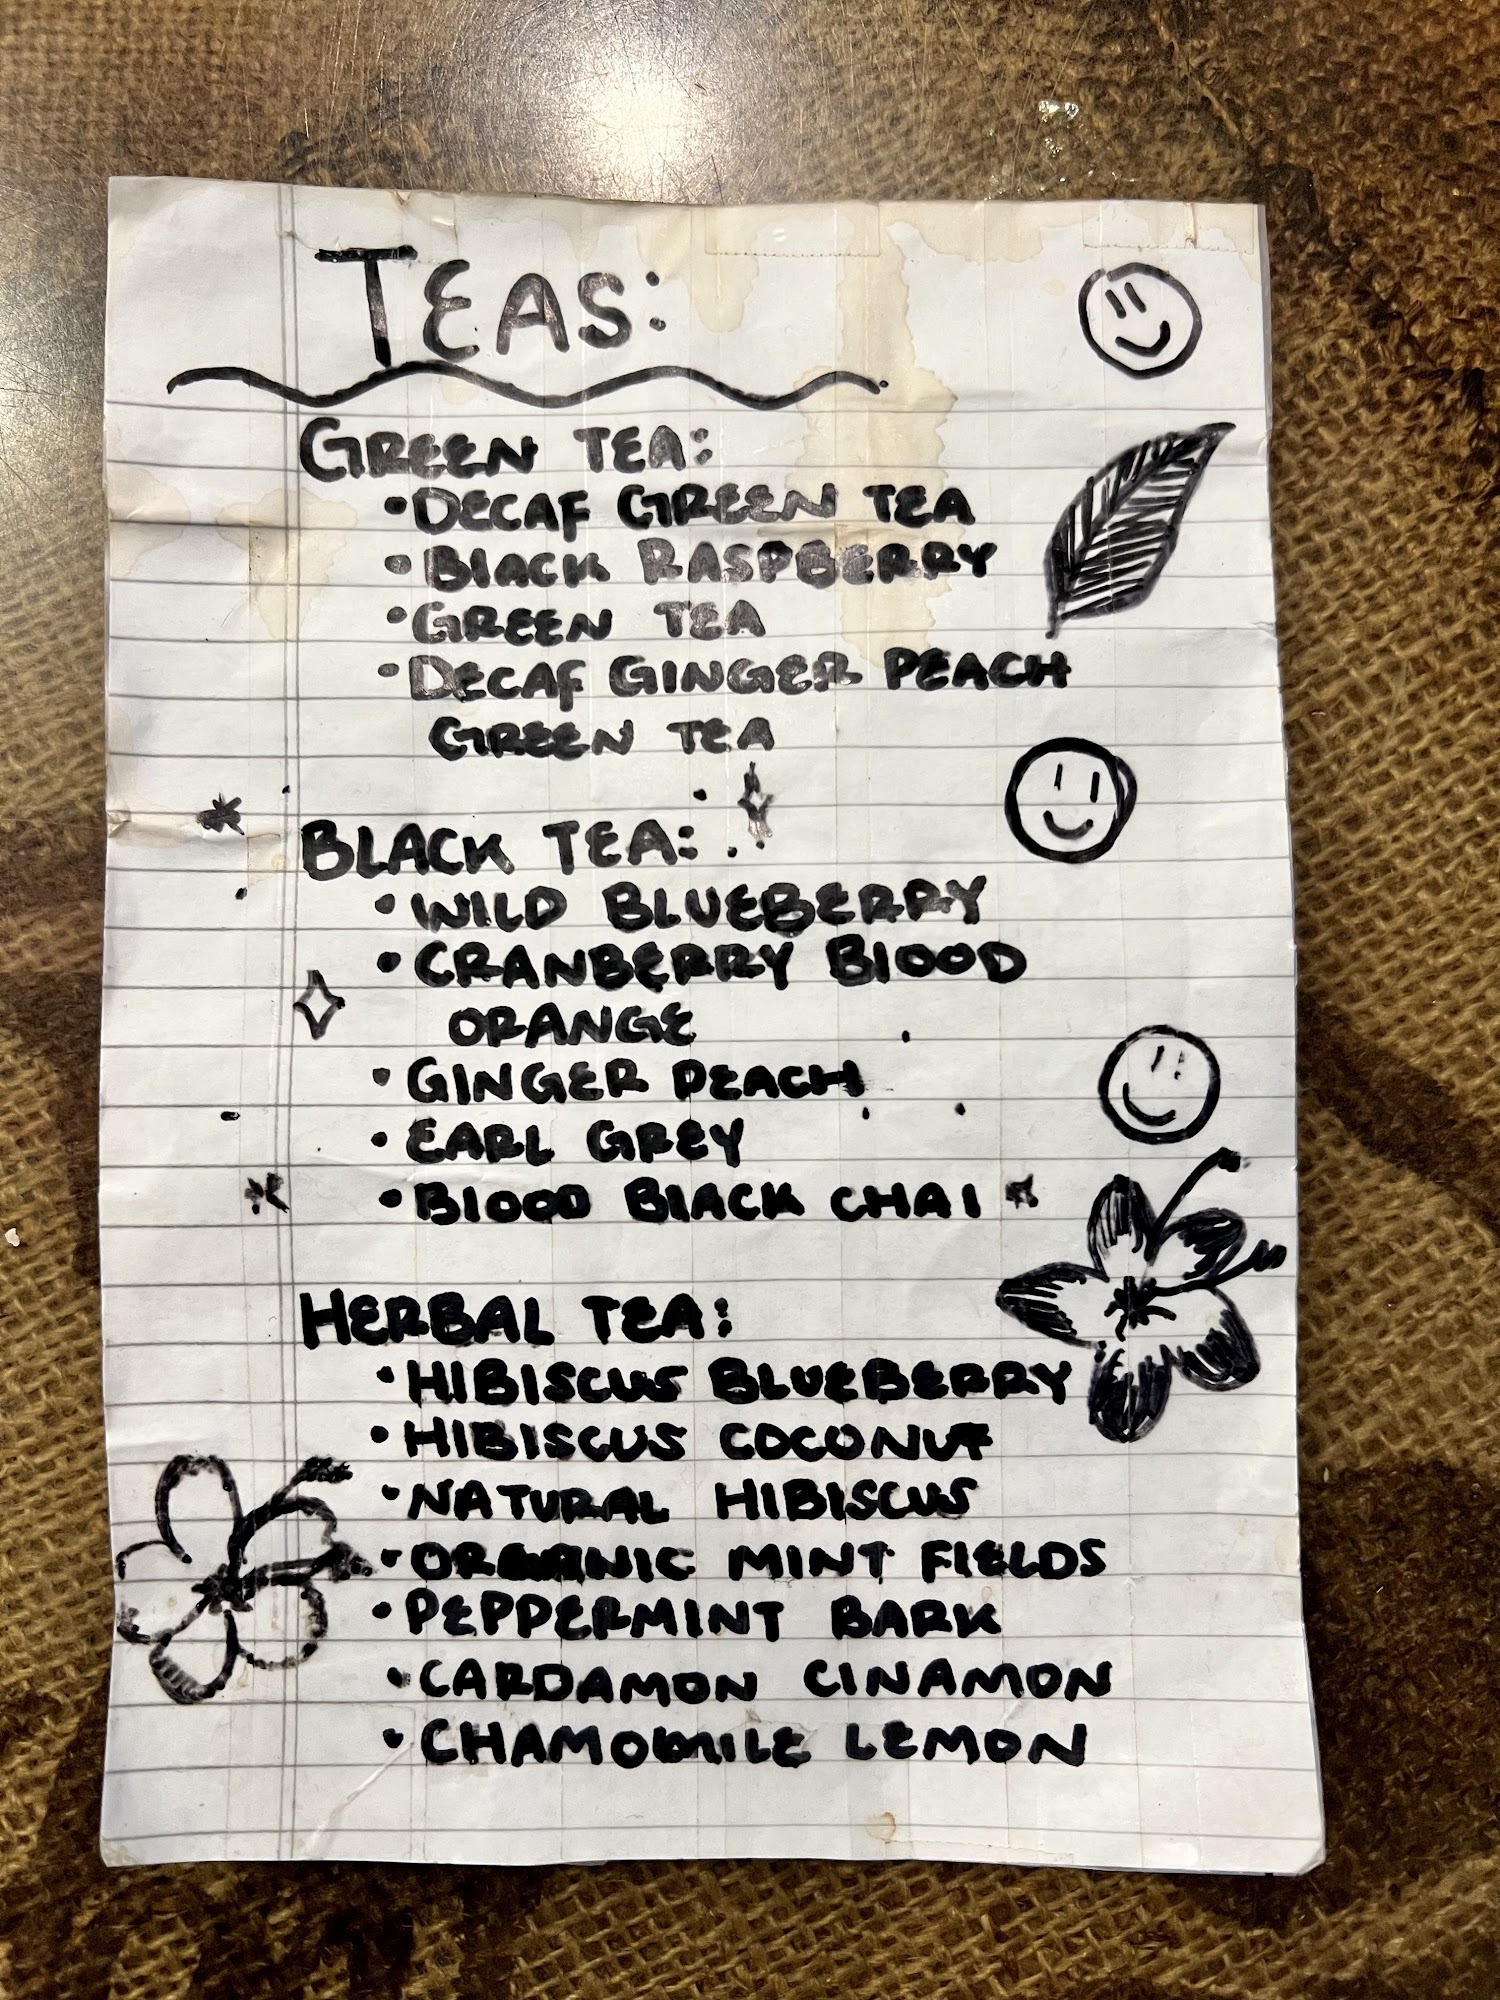 TEAS:
GREEN TEA:
•DECAF GREEN TEA
•BLACK RASPBERRY
•GREEN TEA
•DECAF GINGER PEACH
GREEN TEA
BLACK TEA:
•WILD BLUEBERRY
•CRANBERRY BLOOD
ORANGE
•GINGER PEACH
•EARL GREY
•BLOOD BLACK CHAI
HERBAL TEA:
•HIBISCUS BLUEBERRY
•HIBISCUS COCONUT
•NATURAL HIBISCUS
•ORGANIC MINT FIELDS
•PEPPERMINT BARK
•CARDAMON CINAMON
•CHAMOMILE LEMON